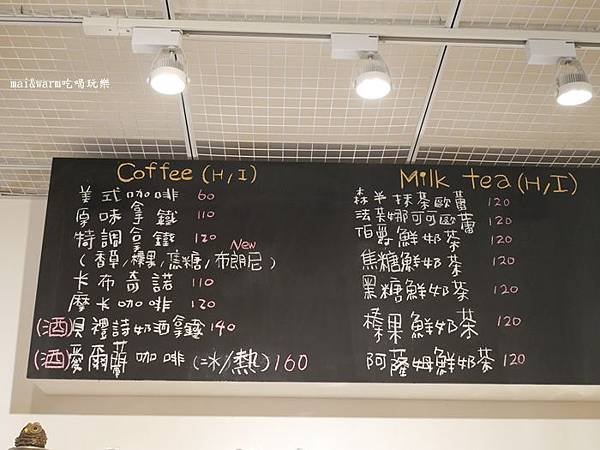 mai&warm吃喝玩樂
Coffee (H,I)
美式咖啡 60
原味拿鐵 110
特調拿鐵 120
New
(香草/榛果/焦糖/布朗尼)
卡布奇諾 110
摩卡咖啡 120
(酒)貝禮詩奶酒拿鐵 140
(酒)愛爾蘭咖啡(冰/熱)160
Milk tea (H,I)
森半抹茶歐蕾 120
法芙娜可可歐蕾 120
伯爵鮮奶茶 120
焦糖鮮奶茶 120
黑糖鮮奶茶 120
榛果鮮奶茶 120
阿薩姆鮮奶茶 120